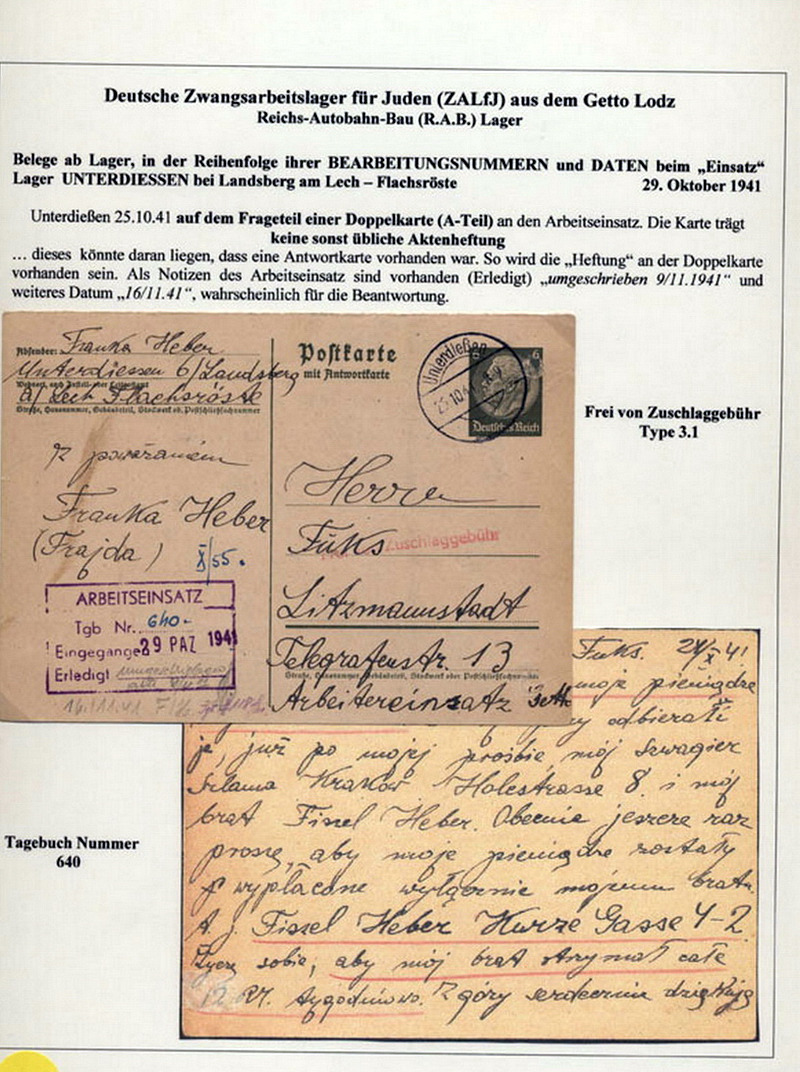 Deutsche Zwangsarbeitslager für Juden (ZALfJ) aus dem Getto Lodz
Reichs-Autobahn-Bau (R.A.B.) Lager
Belege ab Lager, in der Reihenfolge ihrer BEARBEITUNGSNUMMERN und DATEN beim „Einsatz“
Lager UNTERDIESSEN bei Landsberg am Lech – Flachsröste 29. Oktober 1941
Unterdießen 25.10.41 auf dem Frageteil einer Doppelkarte (A-Teil) an den Arbeitseinsatz. Die Karte trägt
keine sonst übliche Aktenheftung
... dieses könnte daran liegen, dass eine Antwortkarte vorhanden war. So wird die „Heftung“ an der Doppelkarte
vorhanden sein. Als Notizen des Arbeitseinsatz sind vorhanden (Erledigt) „umgeschrieben 9/11.1941“ und
weiteres Datum „16/11.41“, wahrscheinlich für die Beantwortung.
Absender: Franka Heber
Unterdiessen 6/Landsberg
Wohnort, auch Zustell- oder Leitpostamt
a/Lech Flachsröste
Straße, Hausnummer, Gebäudeteil, Stockwerk od. Postschließfachnummer
Z poważaniem
Franka Heber
(Frajda)
X/55.
ARBEITSEINSATZ
Tgb Nr. 640-
Eingegangen 29 PAZ 1941
Erledigt
16.11.41
Postkarte
mit Antwortkarte
Unterdießen
25.10.41
6
Deutsches Reich
Herrn
Fuks
Zuschlaggebühr
Litzmannstadt
Telegrafenstr. 13
Straße, Hausnummer, Gebäudeteil, Stockwerk oder Postschließfachnummer
Arbeitereinsatz Getto
Frei von Zuschlaggebühr
Type 3.1
Fuks. 24/X 41
moje pieniądze
odbierali
je, już po mojej prośbie, mój szwagier
Szlama Krakow Holestrasse 8. i mój
brat Fissel Heber. Obecnie jeszcze raz
proszę, aby moje pieniądze zostały
wypłacone wyłącznie mojemu bratu.
t. j. Fissel Heber Kurze Gasse 4-2
Życzę sobie, aby mój brat otrzymał całe
12 RM. tygodniowo. Z góry serdecznie dziękuję
Tagebuch Nummer
640